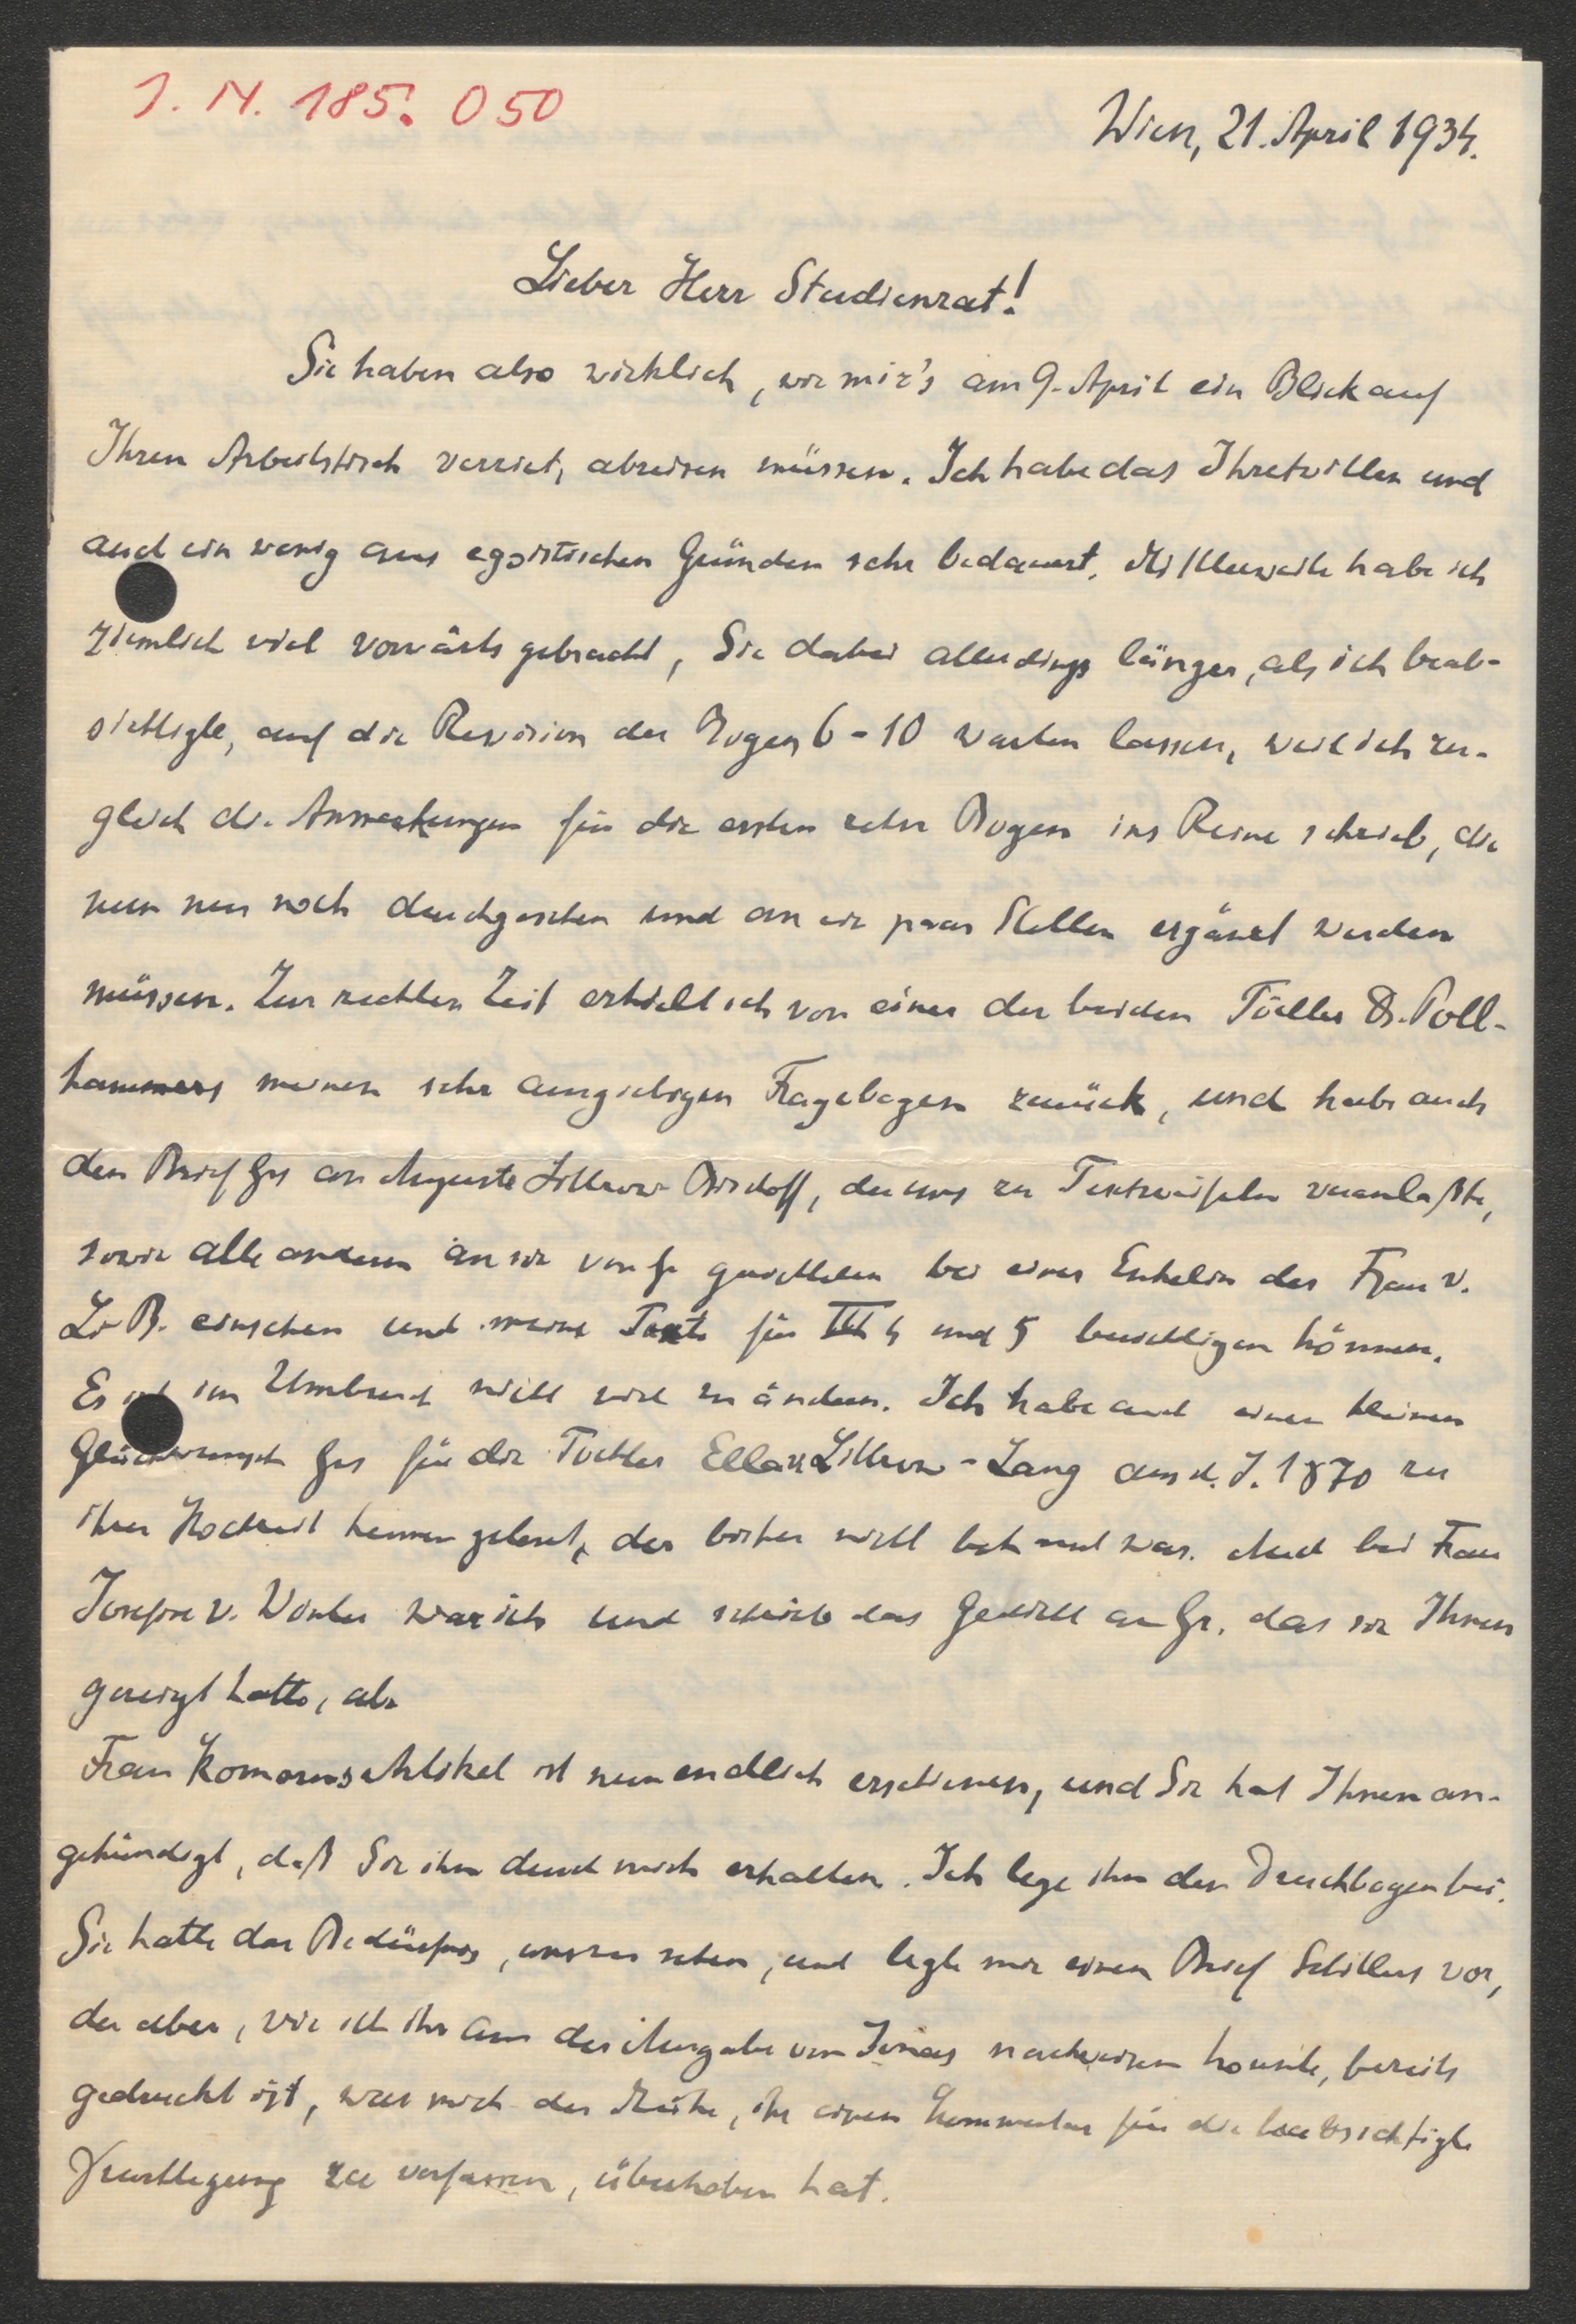 J. N. 185.050
Wien, 21. April 1934.
Lieber Herr Studienrat!
Sie haben also wirklich, wie mir's am 9. April ein Blick auf
Ihren Arbeitstisch verriet, abreisen müssen. Ich habe das Ihretwillen und
auch ein wenig aus egoistischen Gründen sehr bedauert. Mittlerweile habe ich
ziemlich viel vorwärts gebracht, Sie dabei allerdings länger, als ich beab-
sichtigte, auf die Revision der Bogen 6-10 warten lassen, weil ich zu-
gleich die Anmerkungen für die ersten zehn Bogen ins Reine schrieb, die
nun nur noch durchgesehen und an ein paar Stellen ergänzt werden
müssen. Zur rechten Zeit erhielt ich von einer der beiden Töchter Dr. Poll-
hammers meinen sehr ausgiebigen Fragebogen zurück, und habe auch
den Brief Grs an Auguste Littrow-Bischoff, der uns zu Textzweifeln veranlaßte,
sowie alle andern an sie von Gr gerichteten bei einer Enkelin der Frau v.
L-B. einsehen und meine Texte für III 4 und 5 berichtigen können.
Es ist im Umbruch nicht viel zu ändern. Ich habe auch einen kleinen
Glückwunsch Grs für die Tochter Ella v. Littrow-Lang aus d. J. 1870 zu
ihrer Hochzeit kennen gelernt, der bisher nicht bekannt war. Auch bei Frau
Josefine v. Winter war ich und schrieb das Gedicht an Gr. das sie Ihnen
gezeigt hatte, ab.
Frau Komorns Artikel ist nun endlich erschienen, und Sie hat Ihnen an-
gekündigt, daß Sie ihn durch mich erhalten. Ich lege ihn den Druckbogen bei.
Sie hatte das Bedürfnis, uns zu sehen, und legte mir einen Brief Schillers vor,
der aber, wie ich ihr aus der Ausgabe von Jonas nachweisen konnte, bereits
gedruckt ist, was mich der Mühe, ihr einen Kommentar für die beabsichtigte
Drucklegung zu verfassen, überhoben hat.